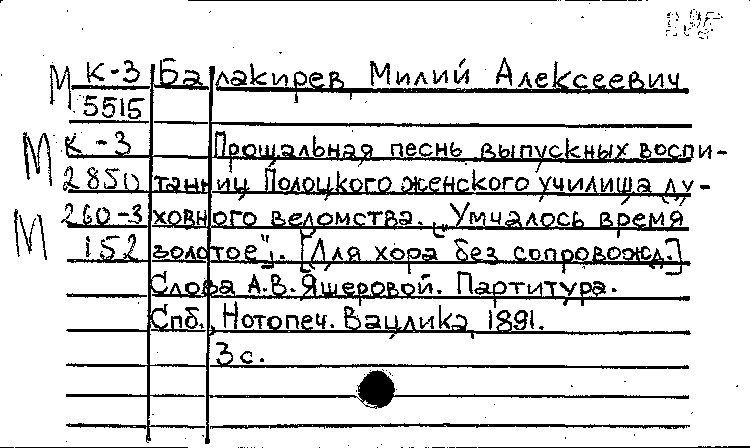 М К-3 Балакирев, Милий Алексеевич
5515
М К-3 Прощальная песнь выпускных воспи-
2850 танниц Полоцкого женского училища ду-
М 260-3 ховного ведомства. „Умчалось время
152 золотое". [Для хора без сопровожд.]
Слова А.В. Яшеровой. Партитура.
Спб., Нотопеч. Вацлика, 1891.
3 с.